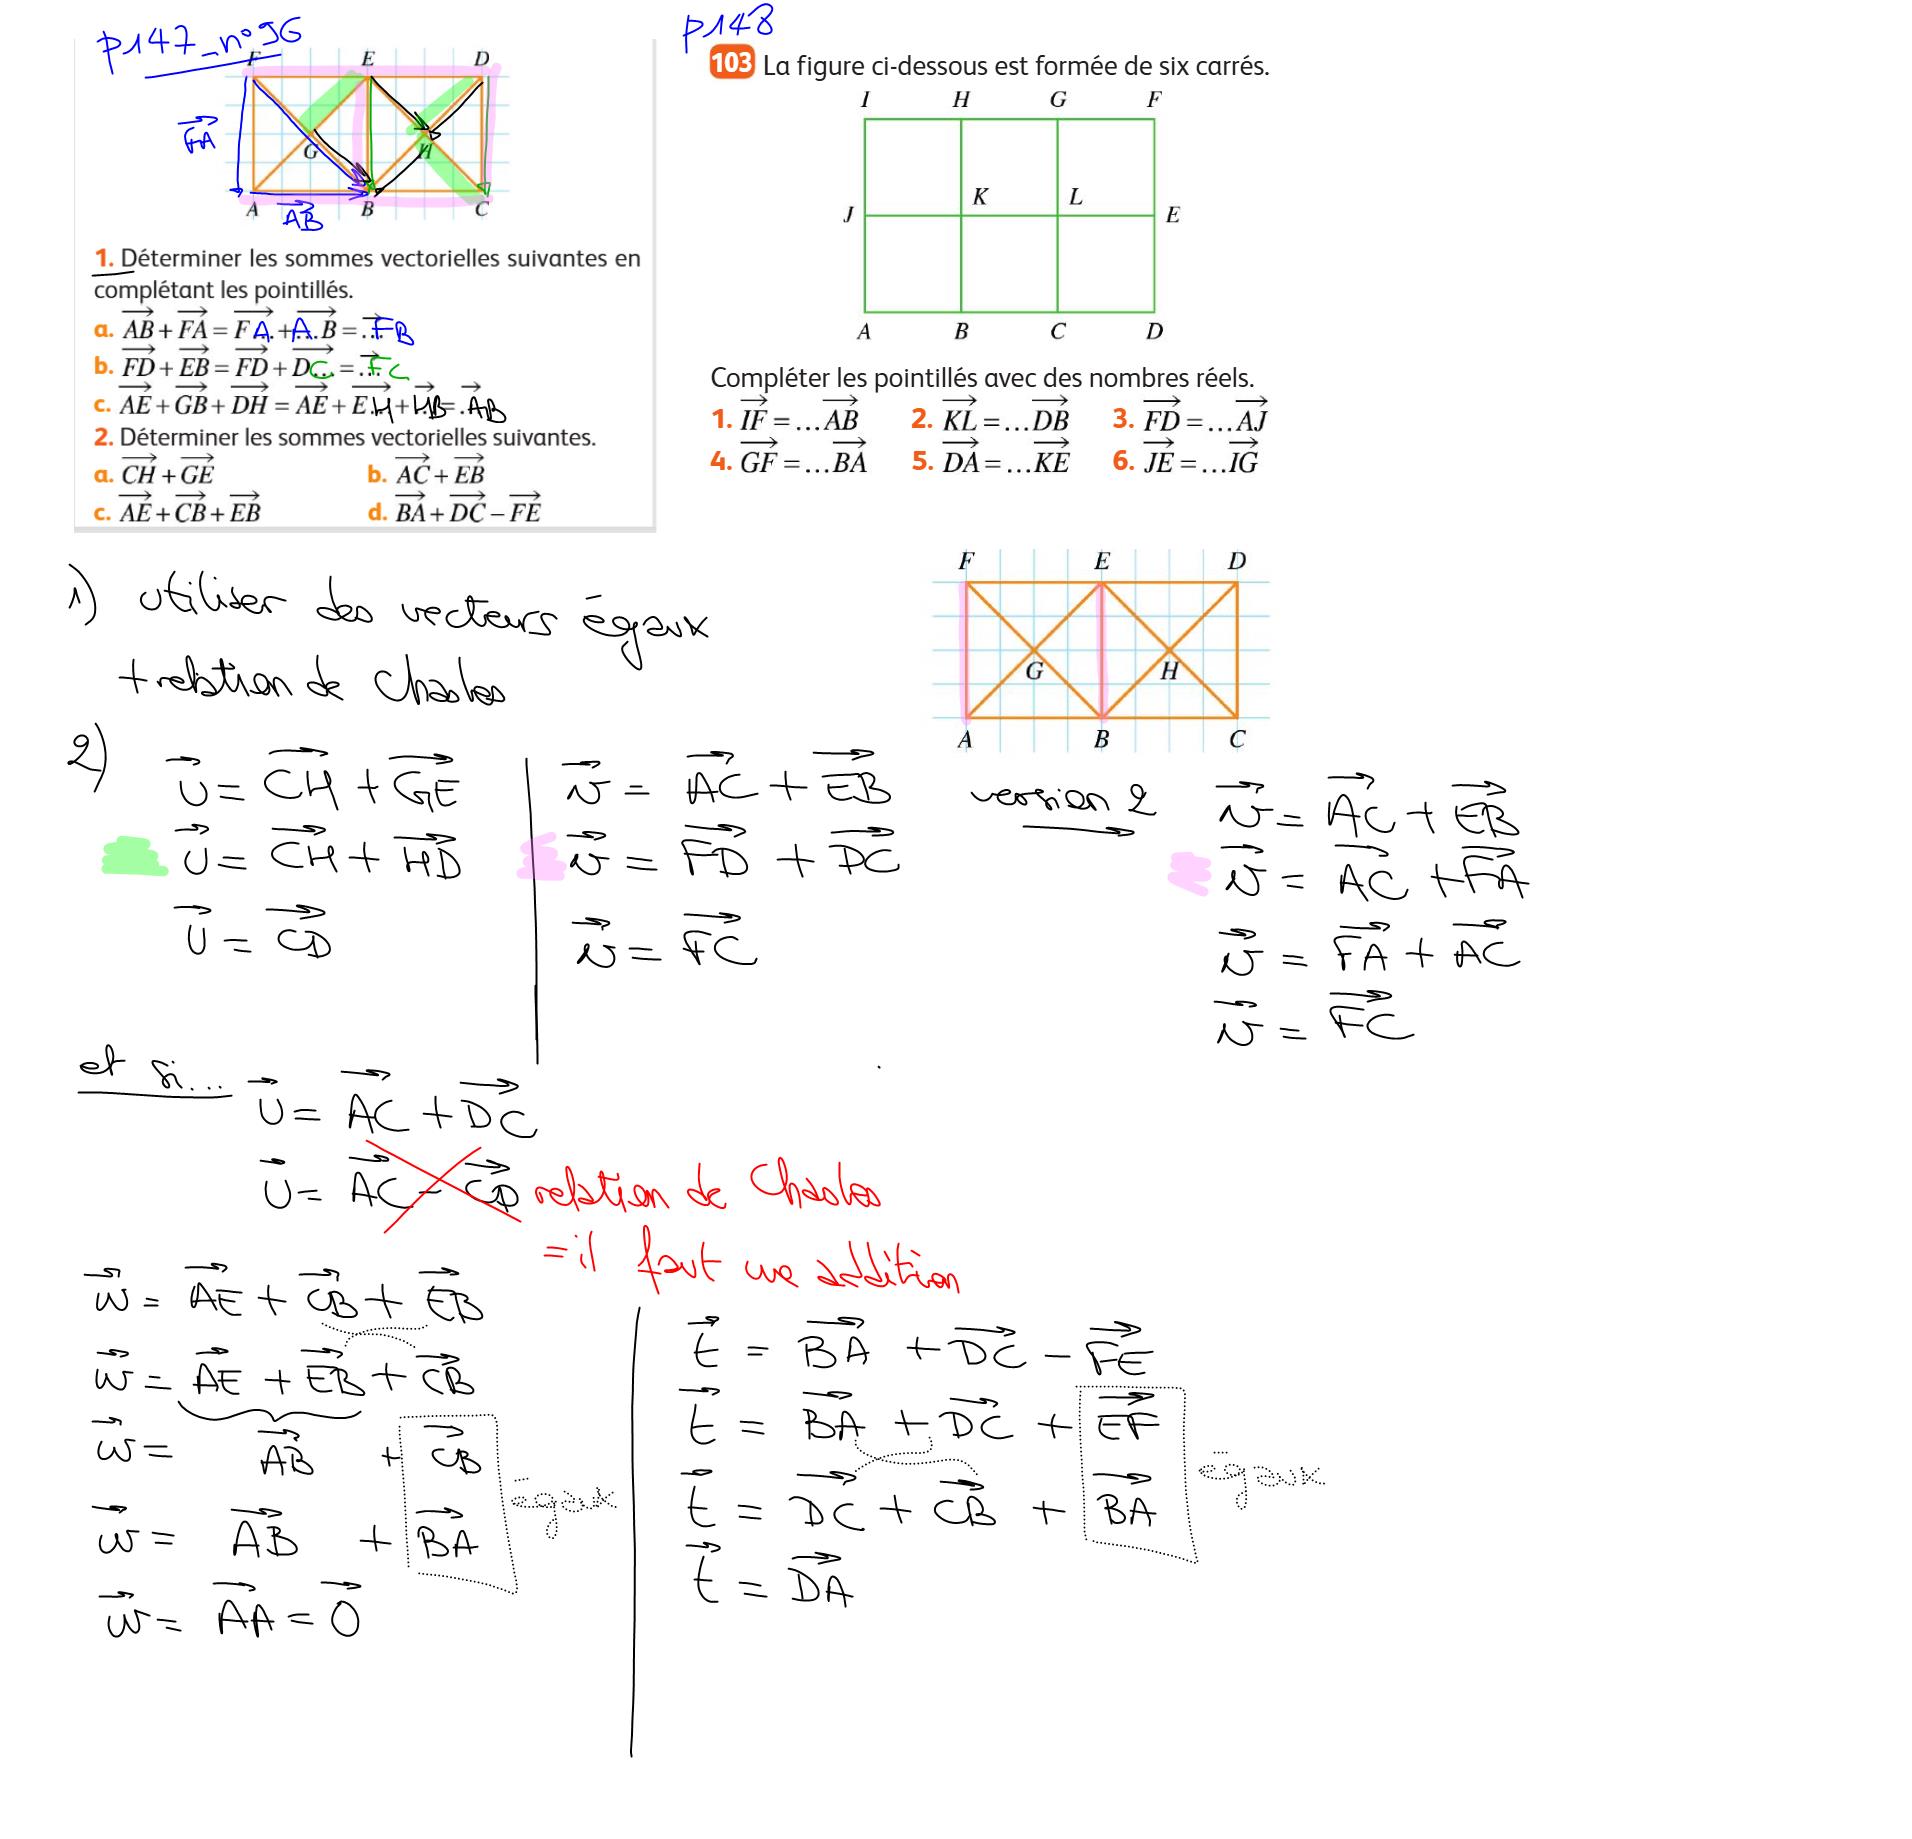 p147_n°96
F E D
FA
G H
A AB B C
1. Déterminer les sommes vectorielles suivantes en
complétant les pointillés.
a. AB + FA = FA. + A..B = ..FB
b. FD + EB = FD + DC... = ..FC
c. AE + GB + DH = AE + E.H + HB = .AB
2. Déterminer les sommes vectorielles suivantes.
a. CH + GE b. AC + EB
c. AE + CB + EB d. BA + DC − FE
p148
103 La figure ci-dessous est formée de six carrés.
I H G F
J K L E
A B C D
Compléter les pointillés avec des nombres réels.
1. IF = ... AB 2. KL = ... DB 3. FD = ... AJ
4. GF = ... BA 5. DA = ... KE 6. JE = ... IG
F E D
G H
A B C
1) utiliser des vecteurs égaux
+ relation de Chasles
2) u = CH + GE
u = CH + HD
u = CD
v = AC + EB
v = FD + DC
v = FC
version 2
v = AC + EB
v = AC + FA
v = FA + AC
v = FC
et si... u = AC + DC
u = AC − CD relation de Chasles
= il faut une addition
w = AE + CB + EB
w = AE + EB + CB
w = AB + CB
égaux
w = AB + BA
w = AA = 0
t = BA + DC − FE
t = BA + DC + EF
égaux
t = DC + CB + BA
t = DA